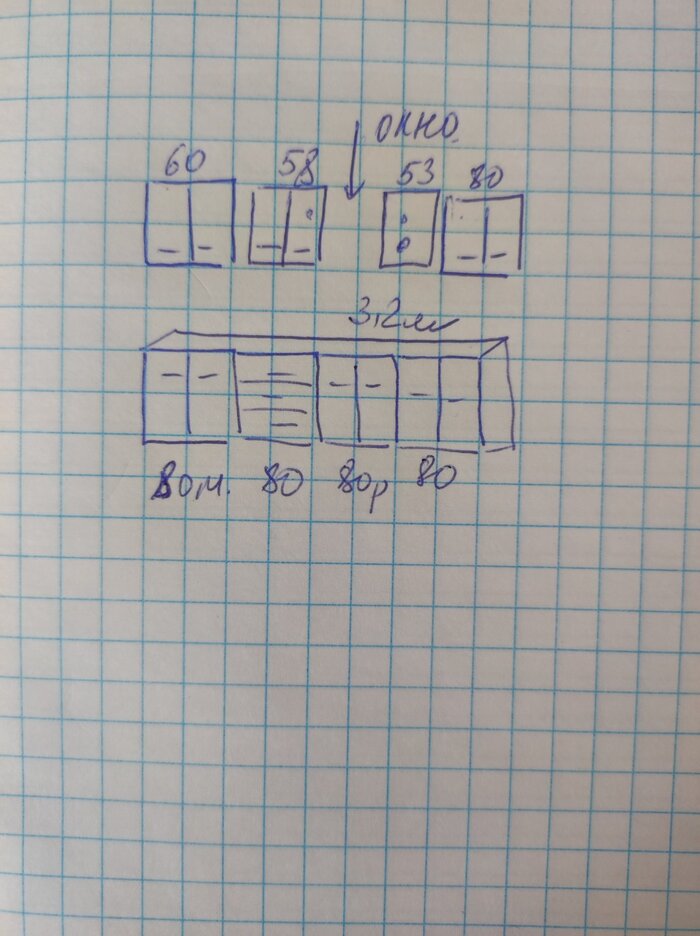 окно.
60 58 53 80
3,2м
80м. 80 80р 80